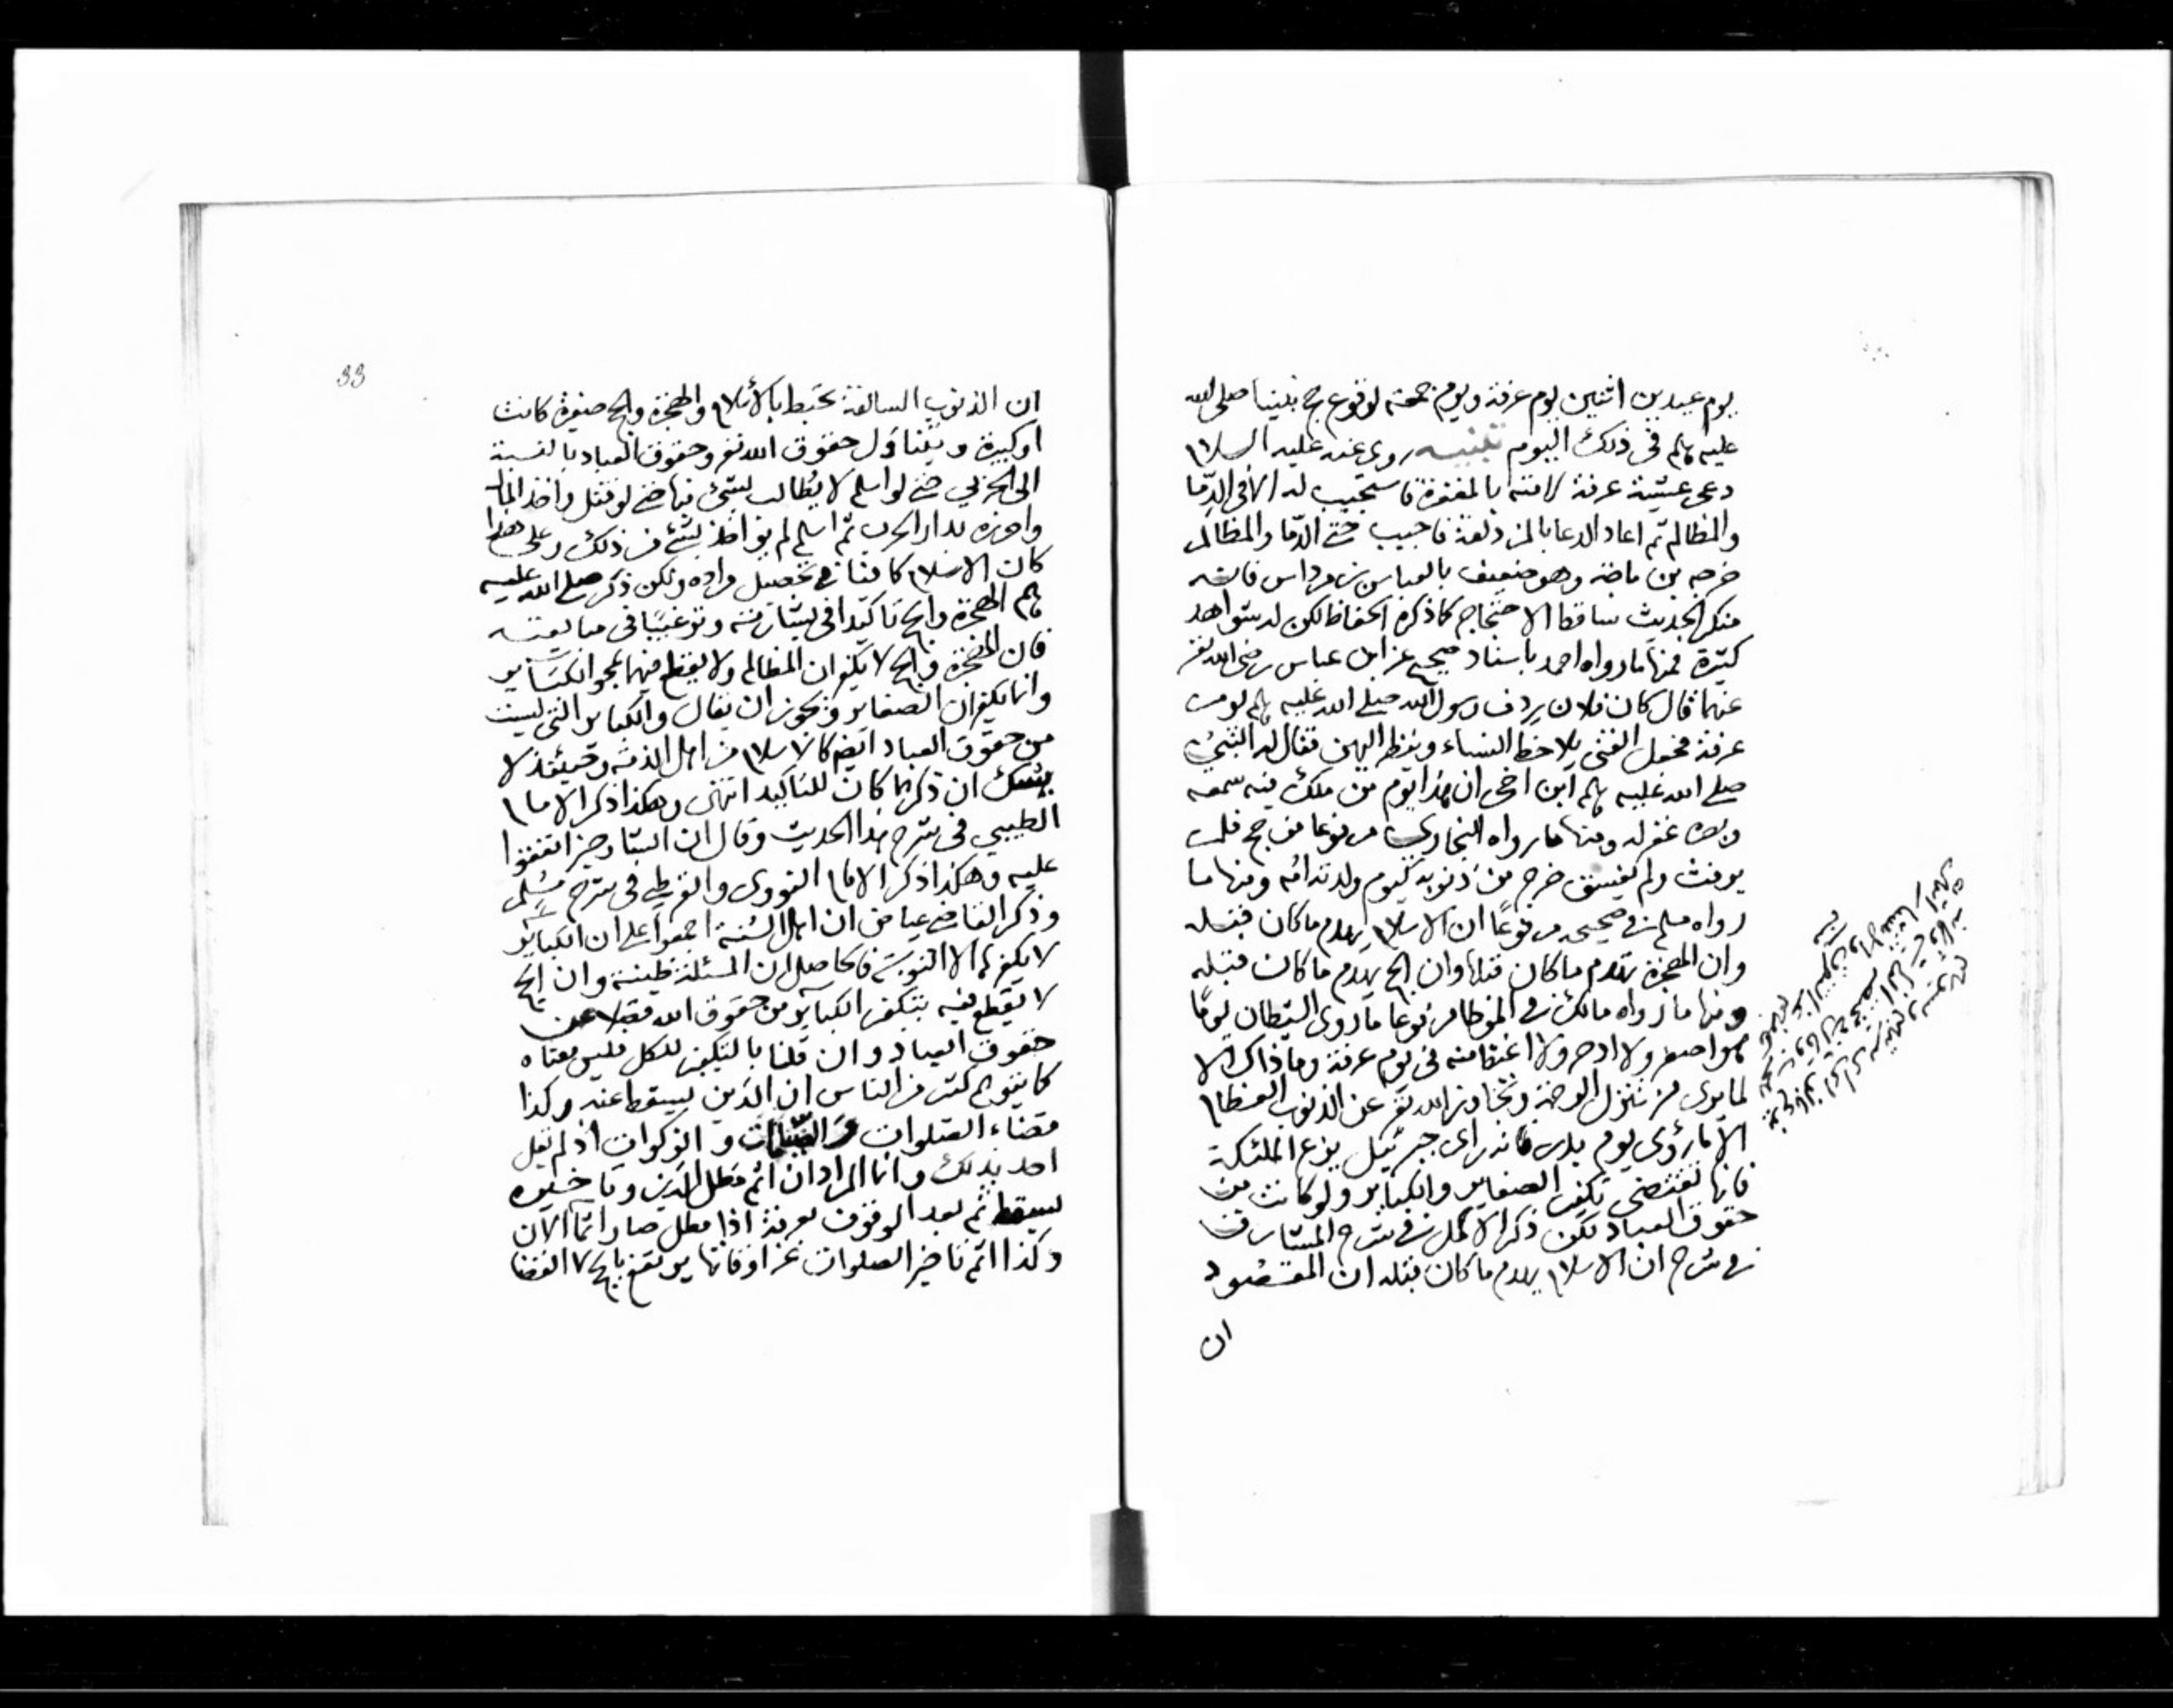 يوم عيدين اثنين يوم عرفة ويوم جمعة لوقوع حج نبينا صلى الله
عليه وسلم في ذلك اليوم تنبيه روى عنه عليه السلام
دعى عشية عرفة لامته بالمغفرة فاستجيب له الا في الدما
والمظالم ثم اعاد الدعا بالمزدلفة فاجيب حتى الدما والمظالم
خرجه بن ماجه وهو ضعيف بالعباس بن مرداس فانه
منكر الحديث ساقط الاحتجاج كما ذكره الحفاظ لكن له شواهد
كثيرة فمنها ما رواه احمد باسناد صحيح عن ابن عباس رضي الله تع
عنهما قال كان فلان ردف رسول الله صلى الله عليه وسلم يوم
عرفة فجعل الفتى يلاحظ النساء وينظر اليهن فقال له النبي
صلى الله عليه وسلم ابن اخي ان هذا يوم من ملك فيه سمعه
وبصره غفر له ومنها ما رواه البخاري مرفوعا من حج فلم
يرفث ولم يفسق خرج من ذنوبه كيوم ولدته امه ومنها ما
رواه مسلم في صحيحه مرفوعا ان الاسلام يهدم ما كان قبله
وان الهجرة تهدم ما كان قبلها وان الحج يهدم ما كان قبله
ومنها ما رواه مالك في الموطا مرفوعا ما روي الشيطان يوما
هو اصغر ولا ادحر ولا اغتظ منه في يوم عرفة وما ذاك الا
لما يرى من تنزل الرحمة وتجاوز الله تع عن الذنوب العظام
الا ما رؤي يوم بدر فانه راى جبرئيل يزع الملئكة
فانها تقتضي تكفير الصغاير والكباير ولو كانت من
حقوق العباد لكن ذكر الاكمل في شرح المشارق
في شرح ان الاسلام يهدم ما كان قبله ان المقصود
ان
33
ان الذنوب السالفة تحبط بالاسلام والهجرة والحج صغيرة كانت
او كبيرة ويتناول حقوق الله تع وحقوق العباد بالنسبة
الى الحربي حتى لو اسلم لا يطالب بشئ منها حتى لو قتل واخذ المال
واحرزه بدار الحرب ثم اسلم لم يواخذ بشئ من ذلك وعلى هذا
كان الاسلام كافيا في تحصيل مراده ولكن ذكر صلى الله عليه
وسلم الهجرة والحج تاكيدا في بشارته وترغيبا في مبايعته
فان الهجرة والحج لا يكفران المظالم ولا يقطع فيهما بمحو الكباير
وانما يكفران الصغاير ويجوز ان يقال والكباير التي ليست
من حقوق العباد ايضا كالاسلام من اهل الذمة وحينئذ لا
يشك ان ذكرهما كان للتاكيد انتهى وهكذا ذكر الامام
الطيبي في شرح هذا الحديث وقال ان الشارحين اتفقوا
عليه وهكذا ذكر الامام النووي والقرطبي في شرح مسلم
وذكر القاضي عياض ان اهل السنة اجمعوا على ان الكباير
لا يكفرها الا التوبة فالحاصل ان المسئلة ظنية وان الحج
لا يقطع فيه بتكفير الكباير من حقوق الله فضلا عن
حقوق العباد وان قلنا بالتكفير للكل فليس معناه
كما يتوهم كثير من الناس ان الدين يسقط عنه وكذا
قضاء الصلوات والصيامات والزكوات اذ لم يقل
احد بذلك وانما المراد ان اثم مطل الدين وتاخيره
يسقط ثم بعد الوقوف بعرفة اذا مطل صار اثما الان
وكذا اثم تاخير الصلوات عن اوقاتها يرتفع بالحج لا القضا